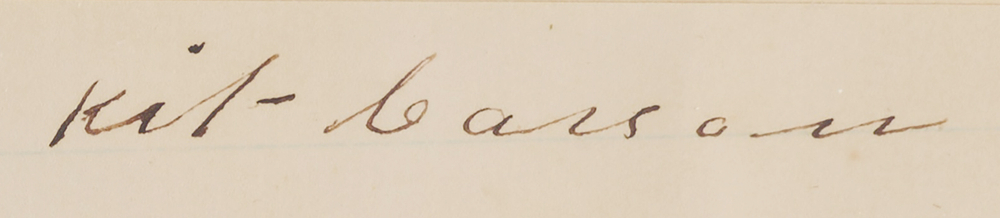 Kit Carson